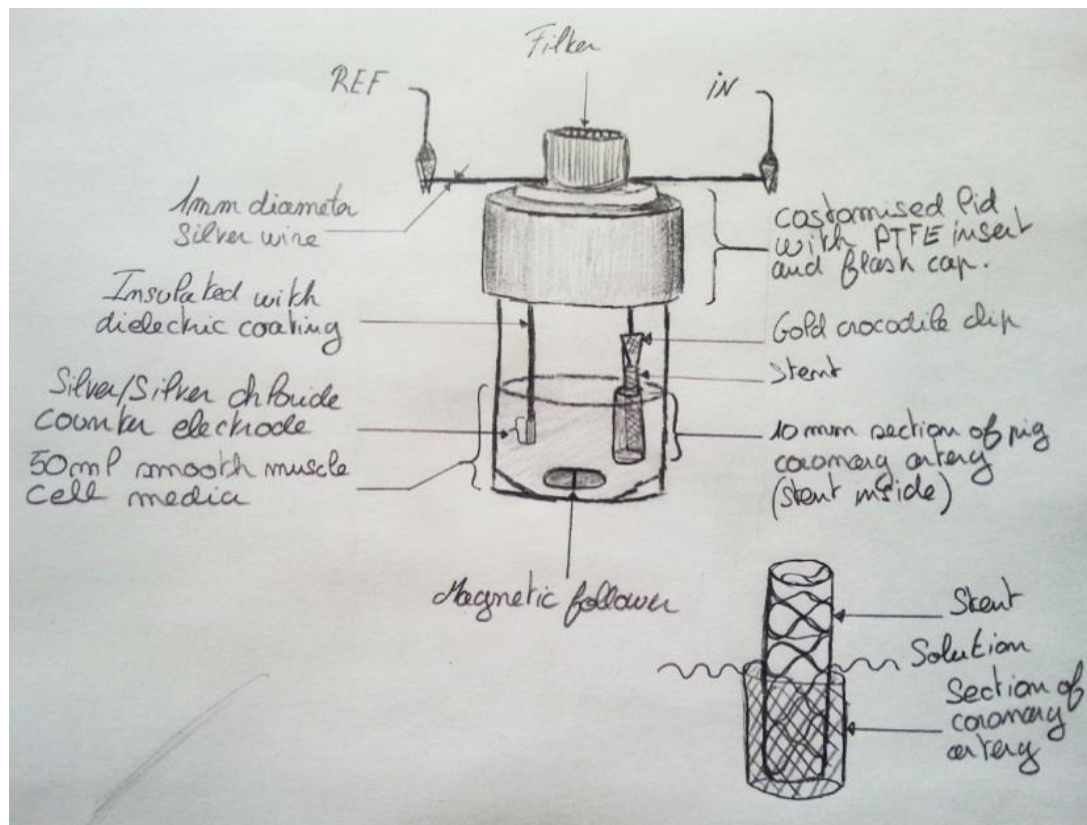 Filter
REF
iN
1mm diameter
silver wire
customised lid
with PTFE insert
and flask cap.
Insulated with
dielectric coating
Gold crocodile clip
Stent
Silver/Silver chloride
counter electrode
10 mm section of pig
coronary artery
(stent inside)
50ml smooth muscle
cell media
Magnetic follower
Stent
Solution
Section of
coronary
artery